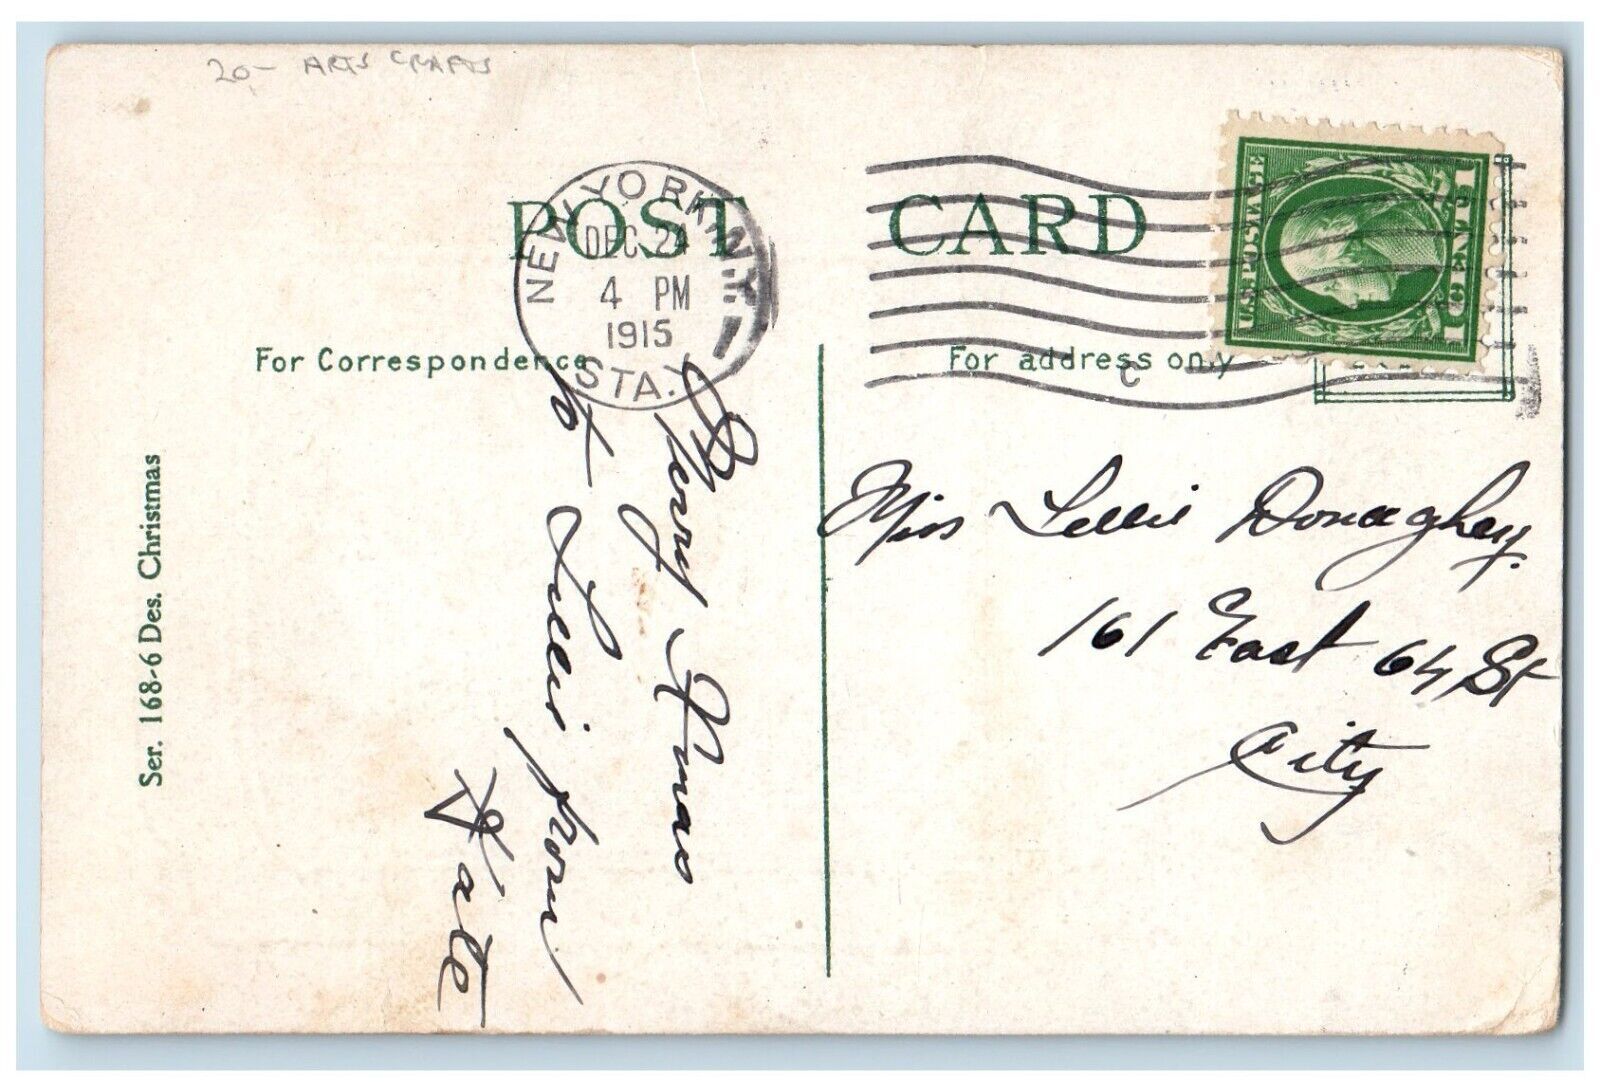 20- ARTS CRAFTS
POST CARD
NEW YORK, N.Y.
DEC 2
4 PM
1915
STA. Y
U.S. POSTAGE
1 ONE CENT 1
For Correspondence
For address only
C
Merry Xmas
to Lillie from
Kate
Miss Lillie Donaghey.
161 East 64 St
City
Ser. 168-6 Des. Christmas